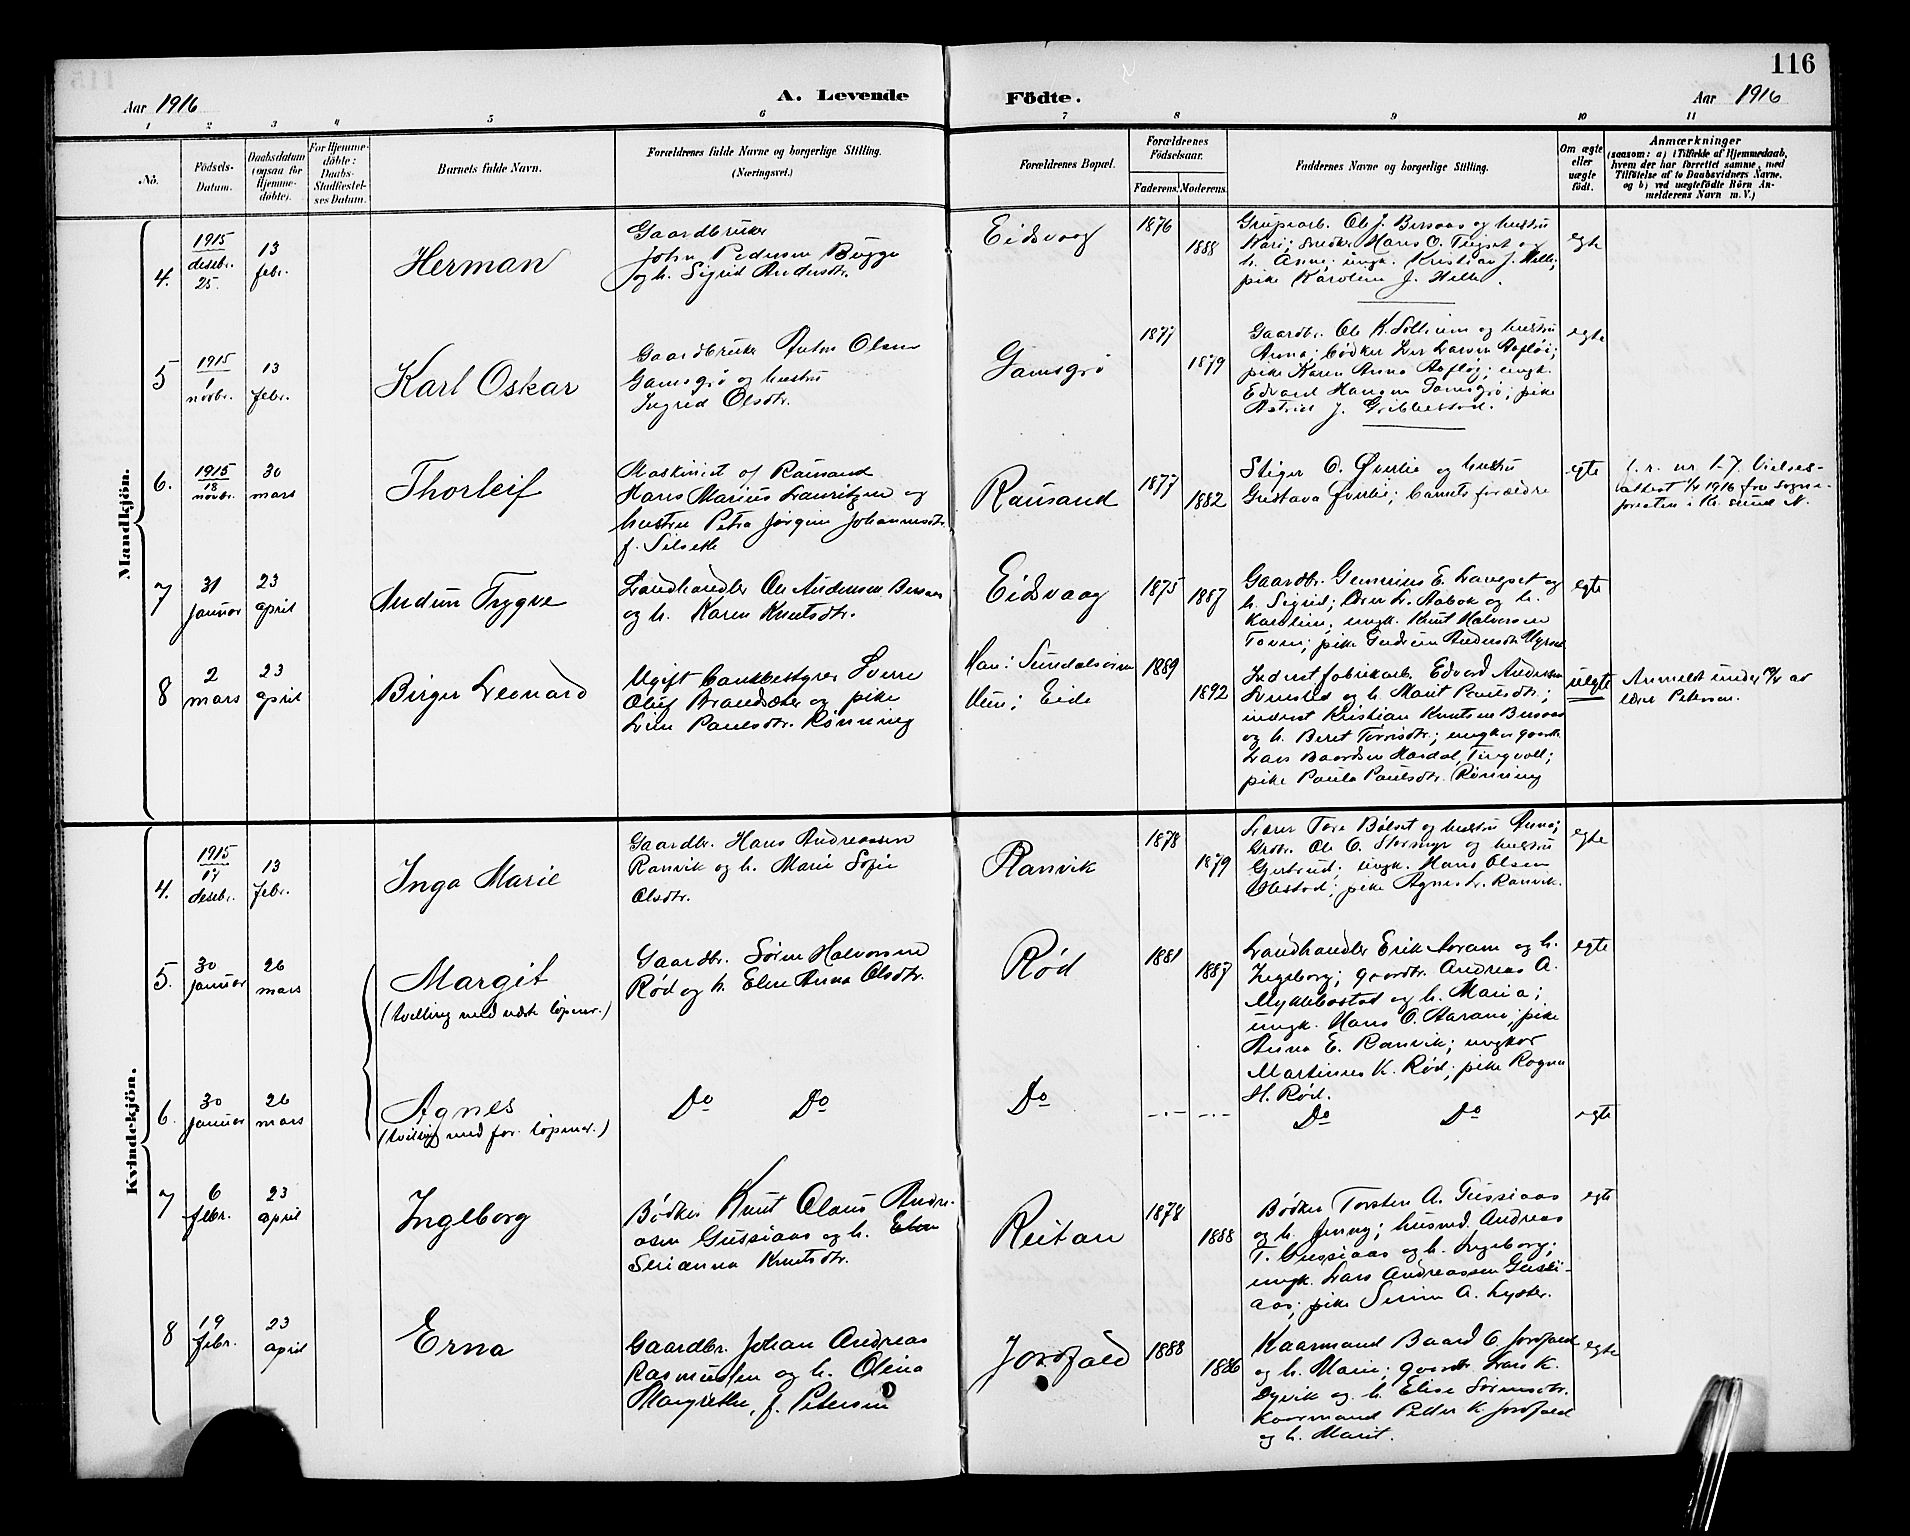 116
Aar 1916
A. Levende
Födte.
Aar 1916
1 2 3 4 5 6 7 8 9 10 11
No.
Födsels-
Datum.
Daabsdatum
(ogsaa for
Hjemme-
døbte).
For Hjemme-
döbte:
Daabs-
Stadfæstel-
ses Datum.
Barnets fulde Navn.
Forældrenes fulde Navne og borgerlige Stilling.
(Næringsvei.)
Forældrenes Bopæl.
Forældrenes
Födselsaar.
Faderens. Moderens.
Faddernes Navne og borgerlige Stilling.
Om ægte
eller
uægte
født.
Anmærkninger
(saasom: a) i Tilfælde af Hjemmedaab,
hvem der har forrettet samme, med
Tilføielse af to Daabsvidners Navne,
og b) ved uægtefödte Börn An-
melderens Navn m. V.)
Mandkjön.
4.
1915
desebr.
25.
13
febr.
Herman
Gaardbruker
John Pedersen Bugge
og h. Sigrid Andersdtr.
Eidsvaag
1876
1888
Grupearb. Ole J. Bersaas og hustru
Kari; smedker Hans O. Tugset og
h. Anne; ungk. Kristian J. Helle;
pike Karoline J. Helle.
egte
5
1915
1
novbr.
13
febr.
Karl Oskar
Gaardbruker Anton Olsen
Gamsgrø og hustru
Ingrid Olsdtr.
Gamsgrø
1877
1879
Gaardbr. Ole K. Solheim og hustru
Anna; bødker Iver Larsen Aafløi;
pike Karen Anna Aafløi; ungk.
Edvard Hansen Gamsgrø; pike
Astrid J. Gribbestad.
egte
6.
1915
18
novbr.
30
mars
Thorleif
Maskinist of Rausand
Hans Marius Lauritzen og
hustru Petra Jørgine Johannesdtr.
f. Silseth
Rausand
1877
1882
Stiger O. Øverlie og hustru
Gustava Øverlie; barnets forældre
egte
f. r. nr. 1-7. Vielses-
attest 1/4 1916 fra sogne-
presten i Kr. sund N.
7
31
januar
23
april
Audun Trygve
Landhandler Ole Andersen Bersaas
og h. Karen Knutsdtr.
Eidsvaag
1875
1887
Gaardbr. Gunnius E. Langset og
h. Sigrid; Iver L. Aabak og h.
Karoline; ungk. Knut Halvorsen
Toven; pike Gudrun Andersdtr.
egte
8
2
mars
23
april
Birger Leonard
Ugift bankbestyrer Sverre
Oluf Brandsæter og pike
Line Paulsdtr. Rønning
Han: Sundalsøren
Hun; Eide
1889
1892
Inderst fabrikarb. Edvard Andersen
Svensted og h. Marit Paulsdtr.;
inderst Kristian Knutsen Bersaas
og h. Beret Torrisdtr.; ungkar gaardbr.
Lars Baardsen Hardal, Tingvoll;
pike Paula Paulsdtr. Rønning
uegte
Anmeldt under 19/4 av
lærer Peterson.
Kvindekjön.
4.
1915
17
desebr.
13
febr.
Inga Marie
Gaardbr. Hans Andreassen
Ranvik og h. Marie Sofie
Olsdtr.
Ranvik
1878
1879
Lærer Tore Bølset og hustru Anna;
Grbr. Ole O. Stormyr og hustru
Gjertrud; ungk. Hans Olsen
Ulastad; pike Agnes L. Ranvik.
egte
5.
30
januar
26
mars
Margit
(tvilling med næste løpenr.)
Gaardbr. Søren Halvorsen
Rød og h. Elen Anna Olsdtr.
Rød
1881
1887
Landhandler Erik Aaram og h.
Ingeborg; gaardbr. Andreas A.
Myklebostad og h. Maria;
ungk. Hans O. Aaram; pike
Anna E. Ranvik; ungkar
Martinus K. Rød; pike Ragna
H. Rød.
egte
6.
30
januar
26
mars
Agnes
(tvilling med for. løpenr.)
Do Do
Do
-.- -.-
Do Do
egte
7
6
febr.
23
april
Ingeborg
Bødker Knut Olaus Andre-
asen Gussiaas og h. Elen
Serianna Knutsdtr.
Reitan
1878
1888
Bødker Torsten A. Gussiaas
og h. Jenny; husmd. Andreas
T. Gussiaas og h. Ingeborg;
ungk. Lars Andreassen Gussi-
aas; pike Serine A. Lyster.
egte
8
19
febr.
23
april
Erna
Gaardbr. Johan Andreas
Rasmussen og h. Olina
Margrethe, f. Petersen
Jordfald
1888
1886
Kaarmand Baard O Jordfald
og h. Marie; gaardbr. Lars K.
Dyvik og h. Elise Sørensdtr.
Kaarmand Peder K. Jordfald
og h. Marit.
egte